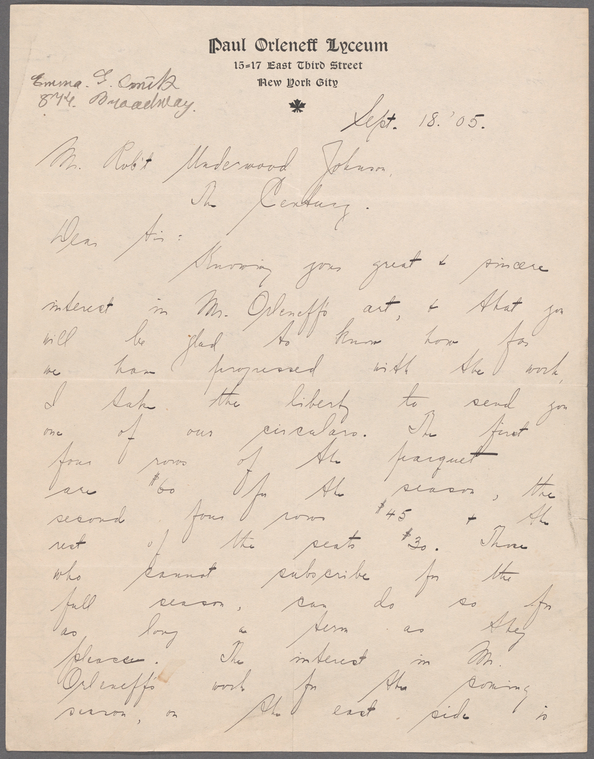 Paul Orleneff Lyceum
15-17 East Third Street
New York City
Emma. G. Smith
874. Broadway.
Sept. 18. '05.
Mr. Rob't Underwood Johnson,
The Century.
Dear Sir:
Knowing your great & sincere
interest in Mr. Orleneff's art, & that you
will be glad to know how far
we have progressed with the work,
I take the liberty to send you
one of our circulars. The first
four rows of the parquet
are $60 for the season, the
second four rows $45 & the
rest of the seats $30. Those
who cannot subscribe for the
full season, can do so for
as long a term as they
please. The interest in Mr.
Orleneff's work for the coming
season, on the east side is